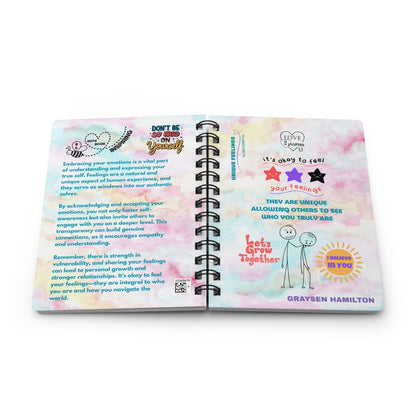 NOTE
BOOK
INSPIRING
DON'T BE
SO HARD
ON
Yourself
Embracing your emotions is a vital part
of understanding and expressing your
true self. Feelings are a natural and
unique aspect of human experience, and
they serve as windows into our authentic
selves.
By acknowledging and accepting your
emotions, you not only foster self-
awareness but also invite others to
engage with you on a deeper level. This
transparency can build genuine
connections, as it encourages empathy
and understanding.
Remember, there is strength in
vulnerability, and sharing your feelings
can lead to personal growth and
stronger relationships. It's okay to feel
your feelings—they are integral to who
you are and how you navigate the
world.
UNIQUE FEELINGS
LOVE
it's okay to feel
your feelings
THEY ARE UNIQUE
ALLOWING OTHERS TO SEE
WHO YOU TRULY ARE
Let's
Grow
Together
I BELIEVE
IN YOU
GRAYSEN HAMILTON